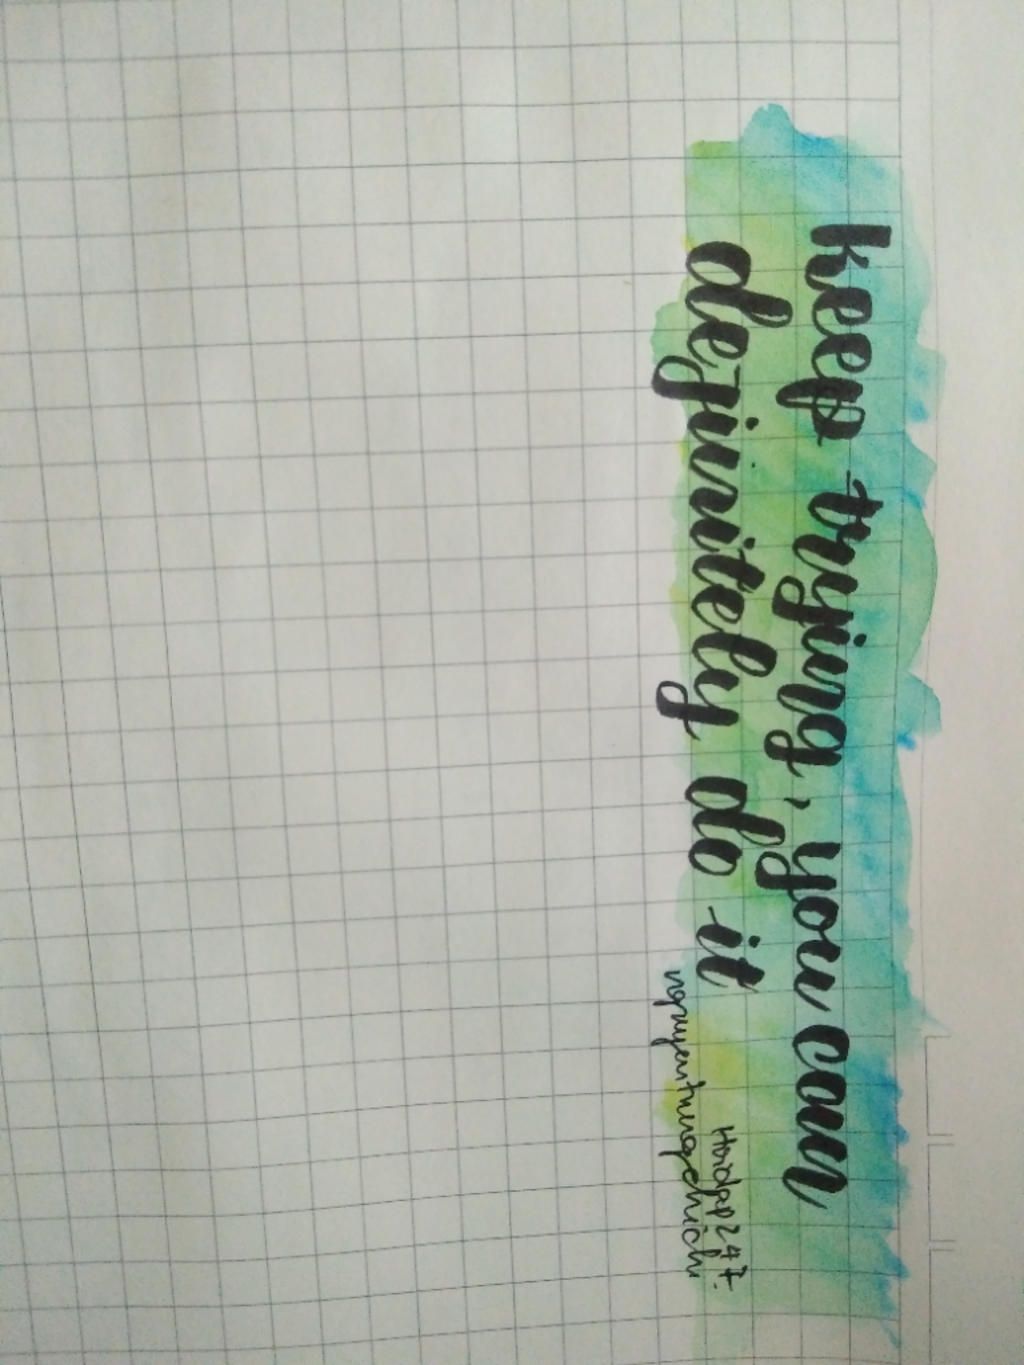 keep trying, you can
definitely do it
Hoidap247.
nguyentrungchichi